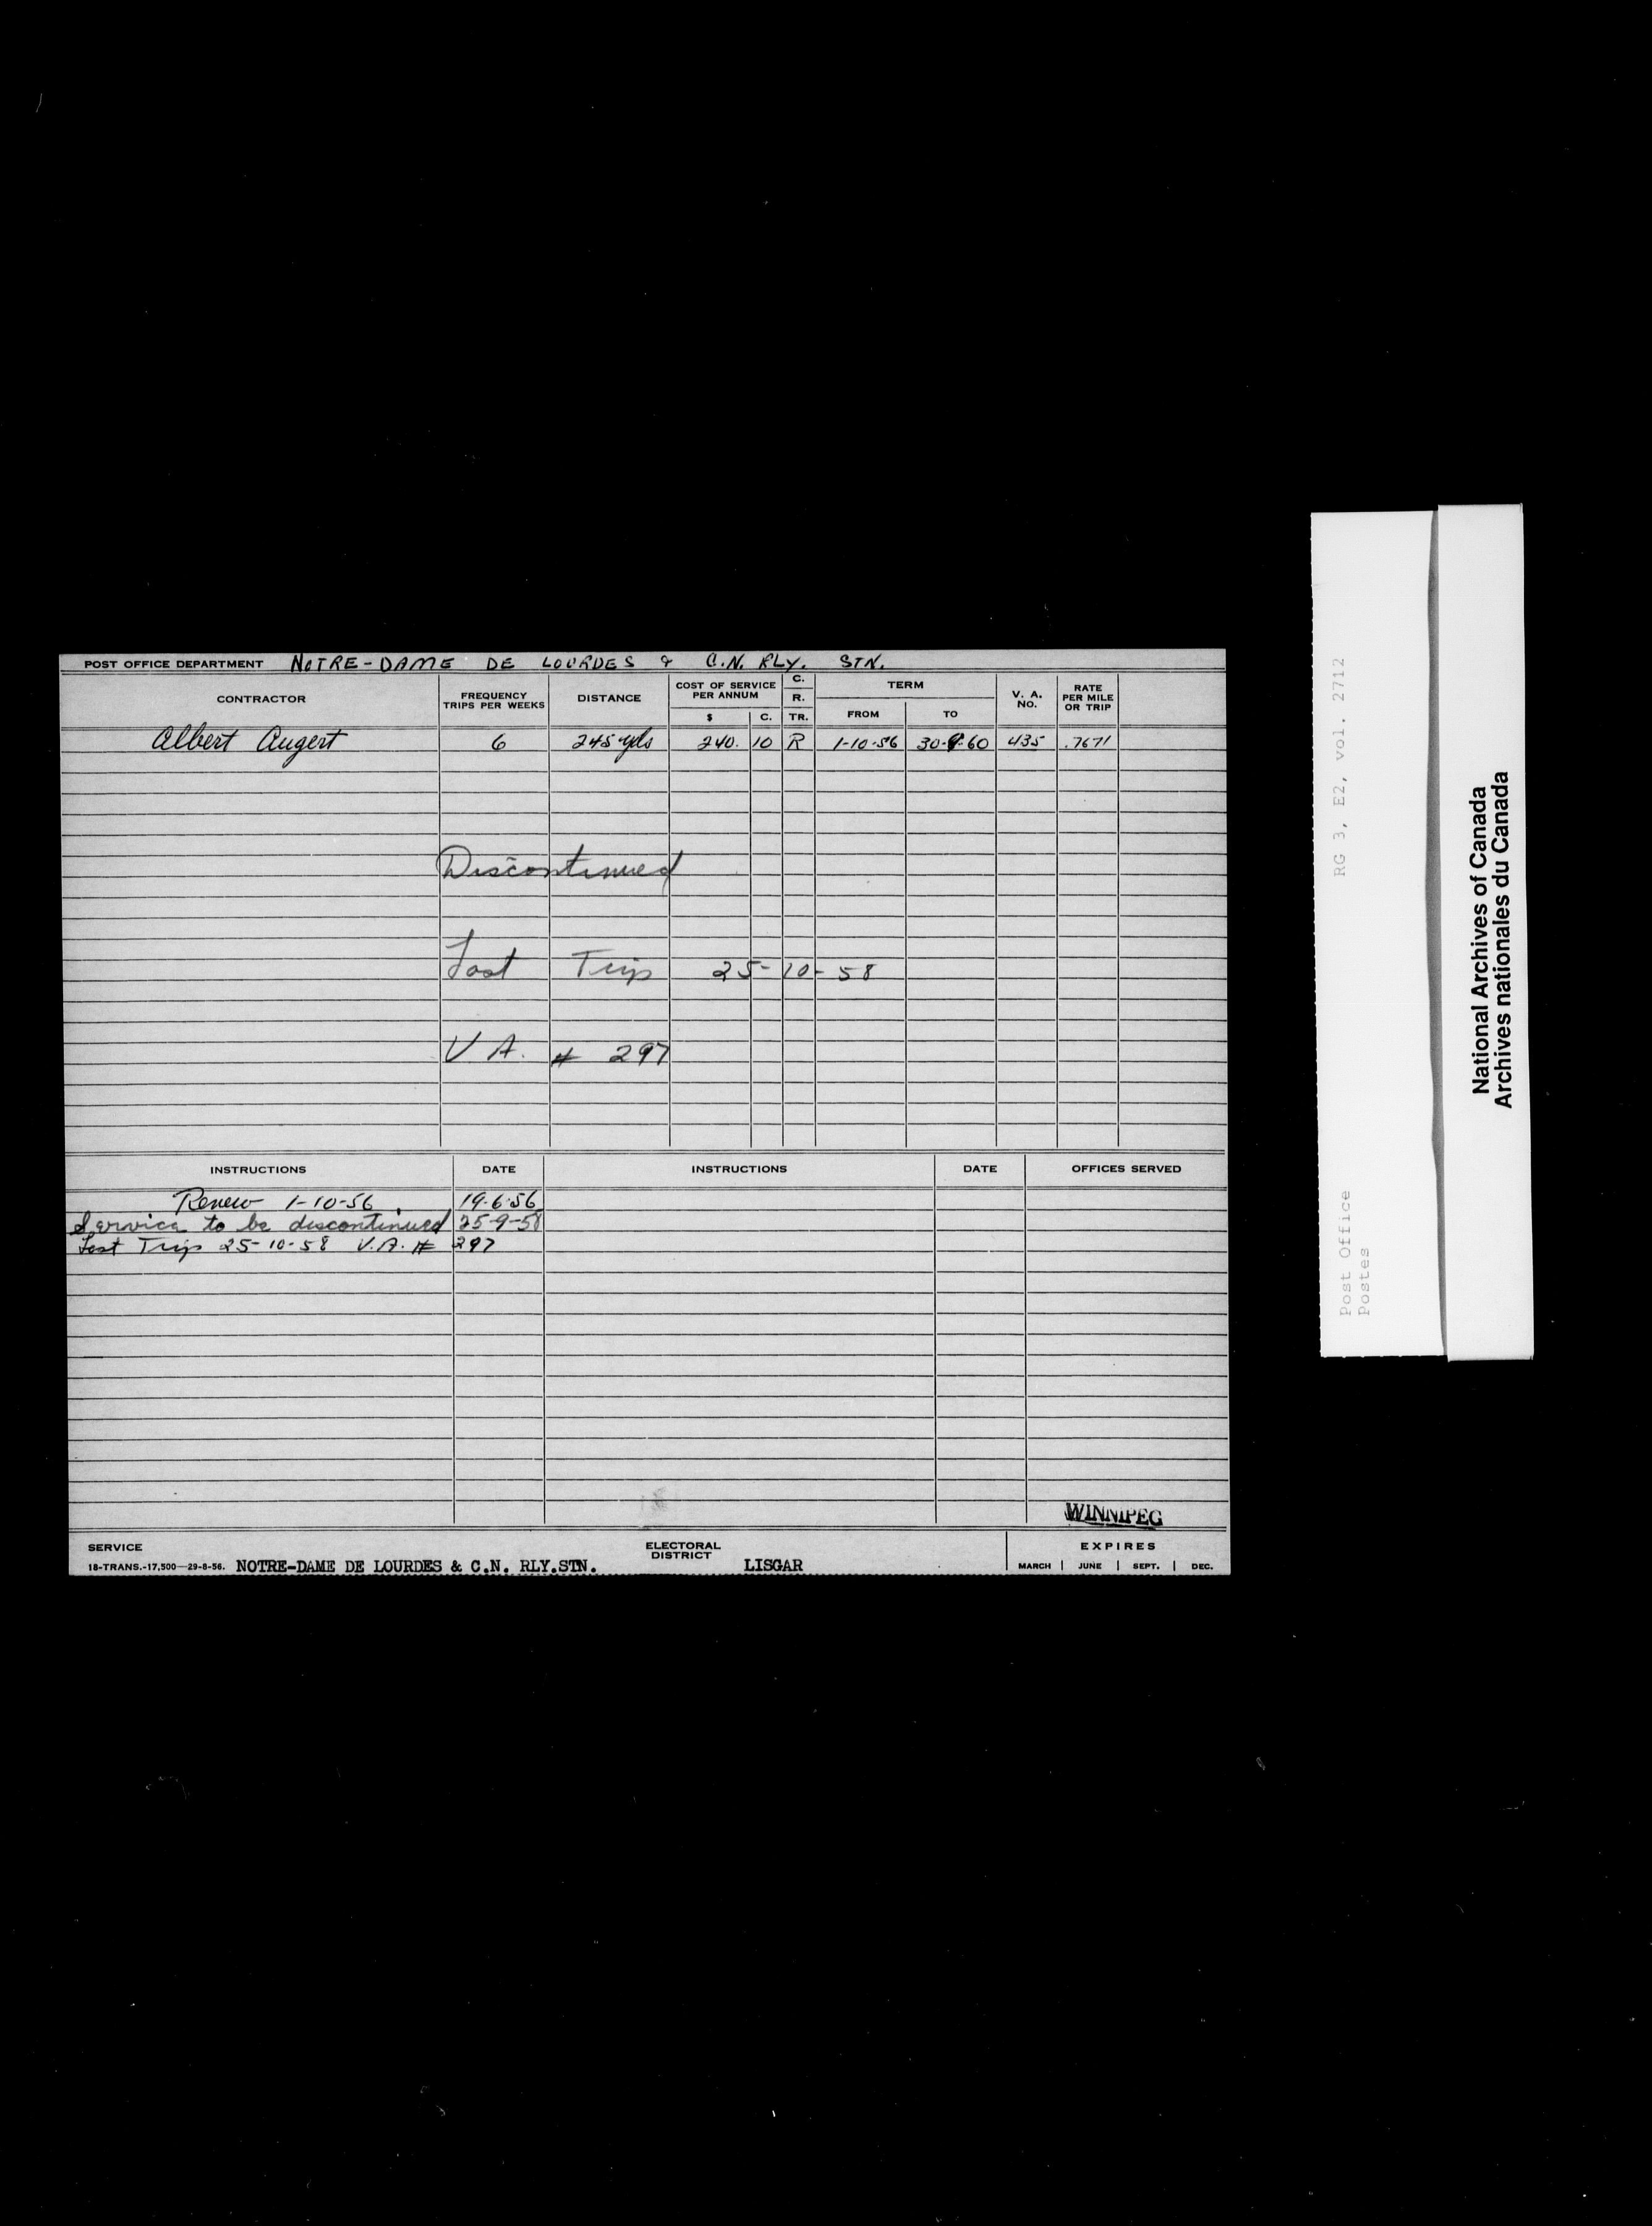 POST OFFICE DEPARTMENT NOTRE-DAME DE LOURDES & C.N. RLY. STN.
CONTRACTOR FREQUENCY TRIPS PER WEEKS DISTANCE COST OF SERVICE PER ANNUM $ C. C. R. TR. TERM FROM TO V. A. NO. RATE PER MILE OR TRIP
Albert Augert 6 245 yds 240. 10 R 1-10-56 30-9-60 435 .7671
Discontinued
Last Trip 25-10-58
V A. # 297
INSTRUCTIONS DATE INSTRUCTIONS DATE OFFICES SERVED
Renew 1-10-56. 19-6-56
Service to be discontinued 25-9-58
Last Trip 25-10-58 V.A. # 297
WINNIPEG
SERVICE ELECTORAL DISTRICT EXPIRES
18-TRANS.-17,500—29-8-56. NOTRE-DAME DE LOURDES & C.N. RLY.STN. LISGAR MARCH JUNE SEPT. DEC.
RG 3, E2, vol. 2712
Post Office
Postes
National Archives of Canada
Archives nationales du Canada